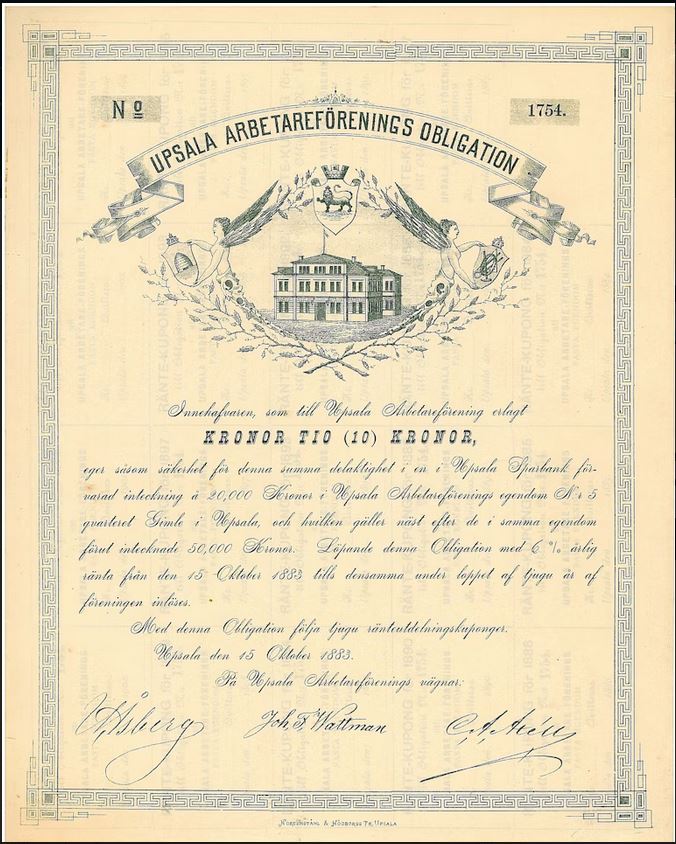 No 1754.
UPSALA ARBETAREFÖRENINGS OBLIGATION
Innehafvaren, som till Upsala Arbetareförening erlagt
KRONOR TIO (10) KRONOR,
eger såsom säkerhet för denna summa delaktighet i en i Upsala Sparbank för-
varad inteckning à 20,000 Kronor i Upsala Arbetareförenings egendom N:r 5
qvarteret Gimle i Upsala, och hvilken gäller näst efter de i samma egendom
förut intecknade 50,000 Kronor. Löpande denna Obligation med 6 % årlig
ränta från den 15 Oktober 1883 tills densamma under loppet af tjugu år af
föreningen inlöses.
Med denna Obligation följa tjugu ränteutdelningskuponger.
Upsala den 15 Oktober 1883.
På Upsala Arbetareförenings vägnar:
Åsberg Joh. F. Wattman C. A.
& HÖGBORGS TR. UPSALA